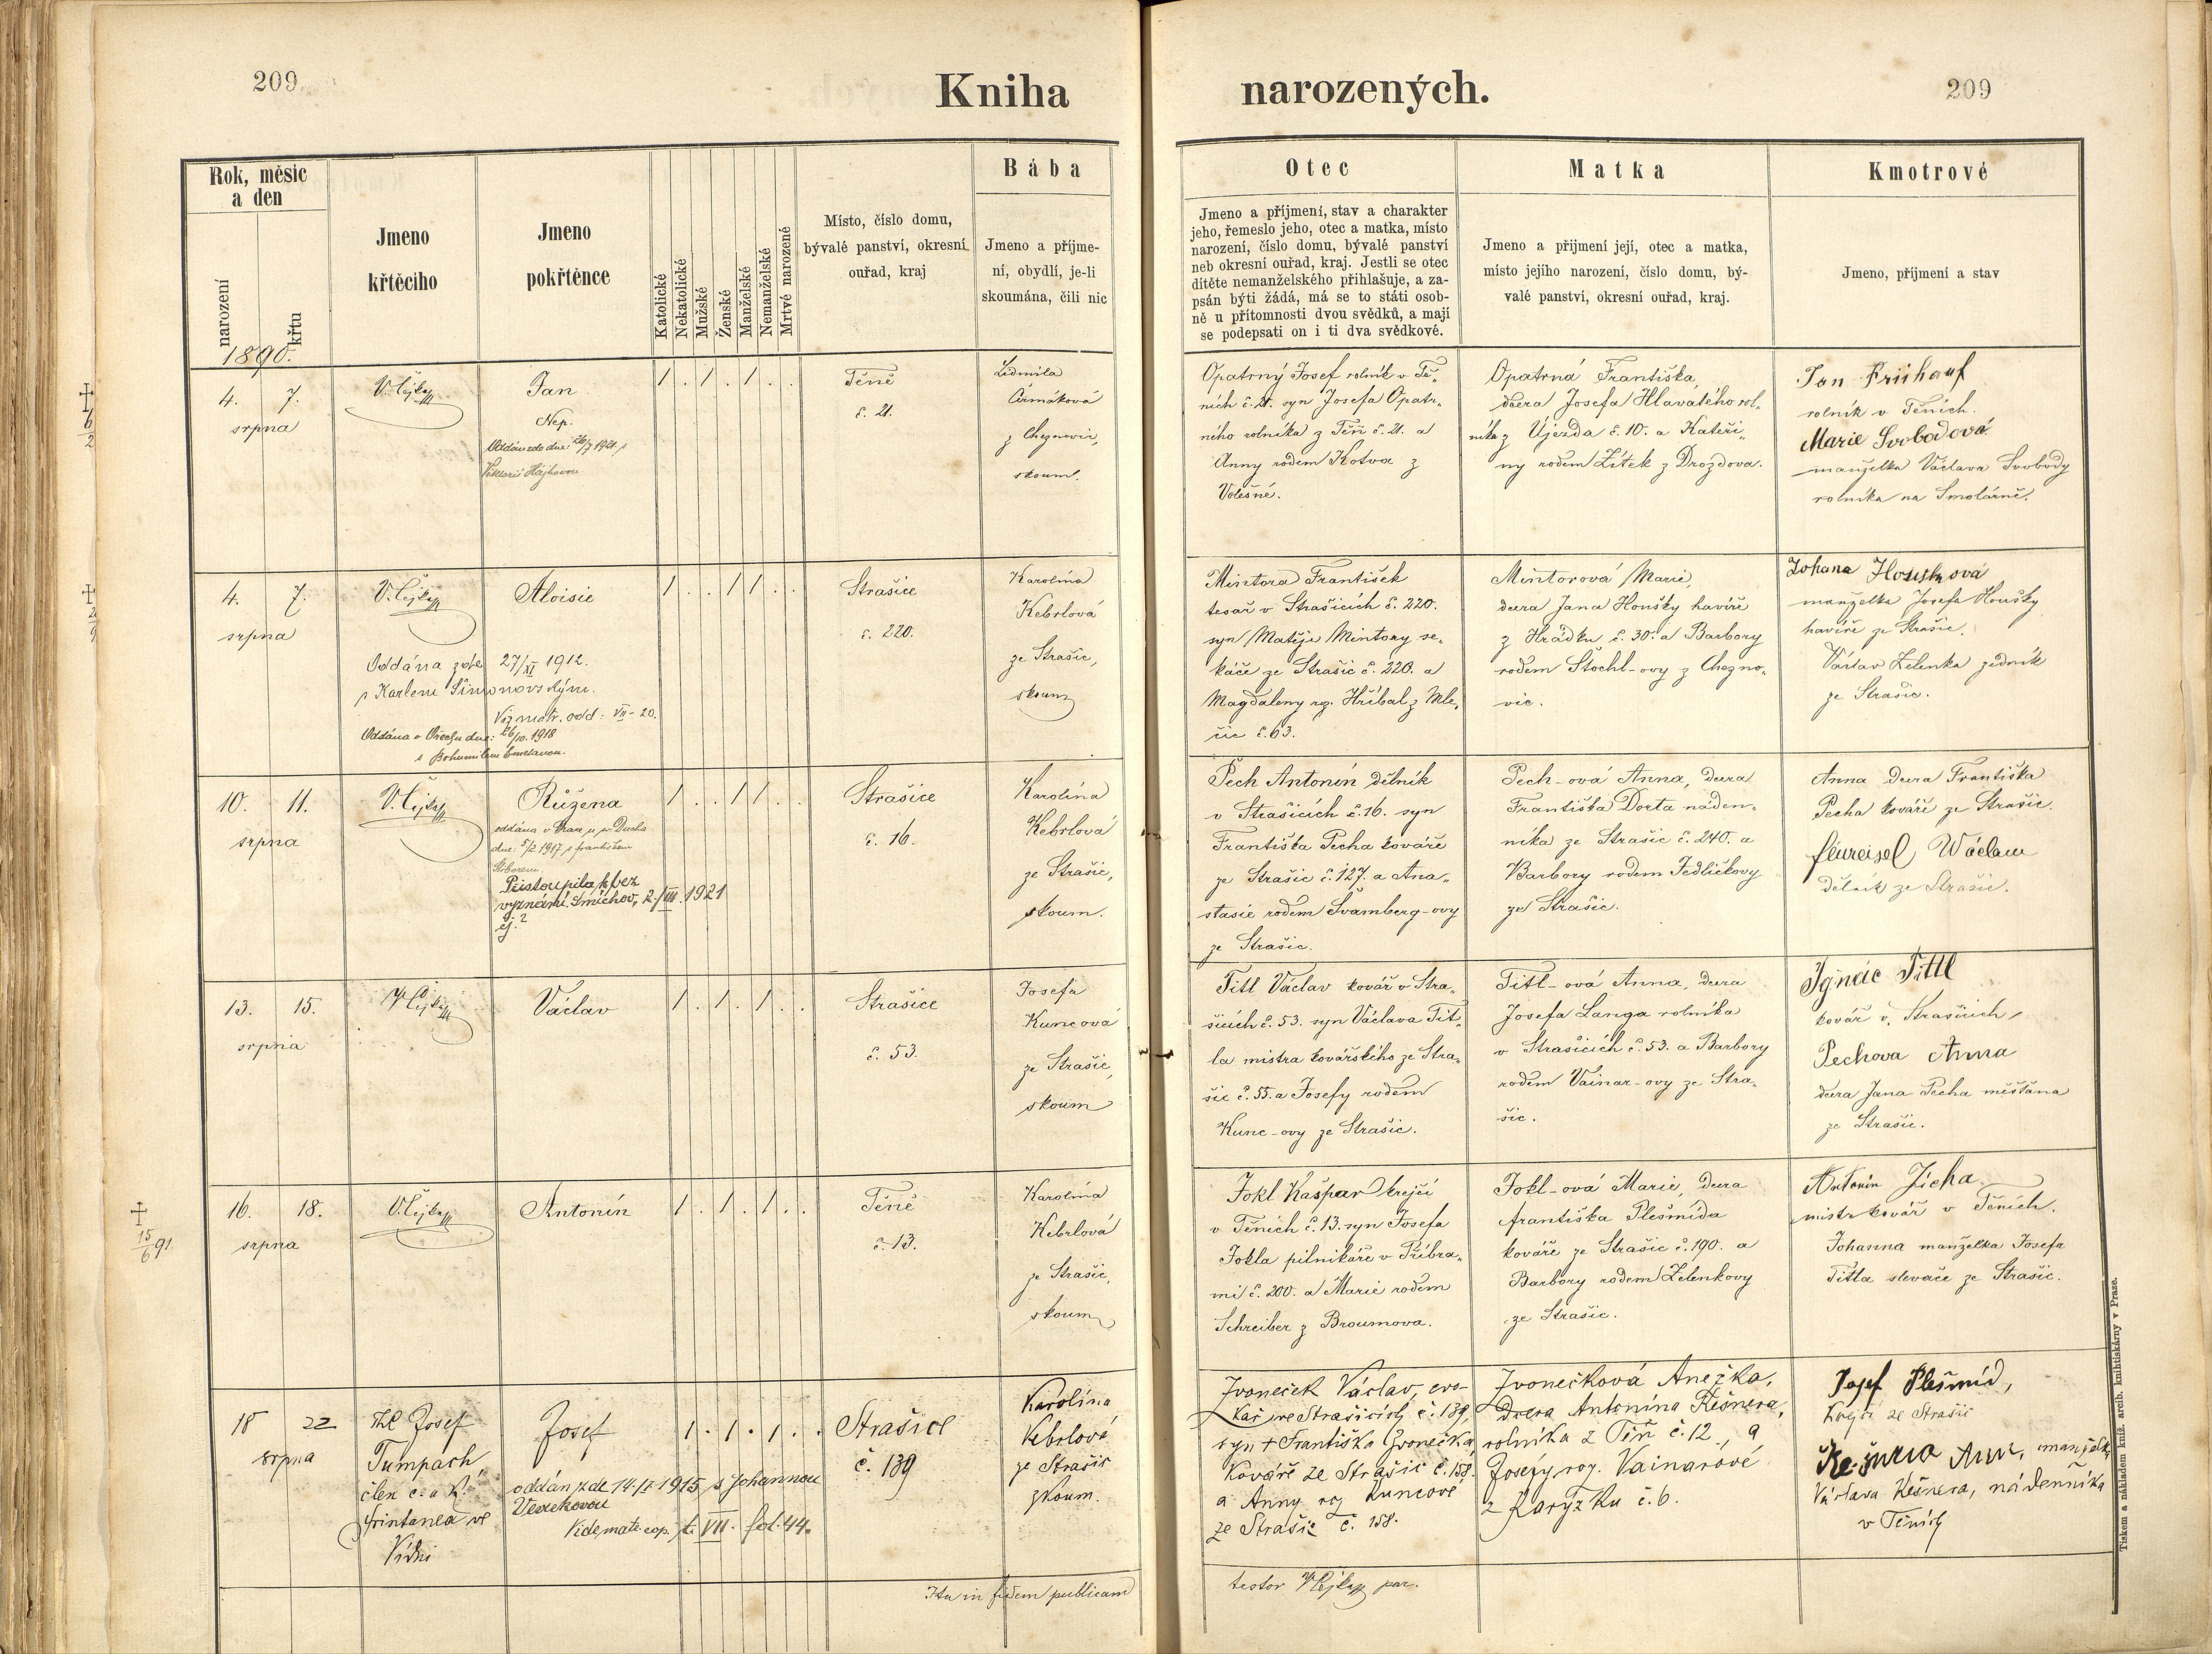 209
Kniha
narozených.
209
Rok, měsíc
a den
narození
křtu
Jmeno
křtěcího
Jmeno
pokřtěnce
Katolické
Nekatolické
Mužské
Ženské
Manželské
Nemanželské
Mrtvé narozené
Místo, číslo domu,
bývalé panství, okresní
ouřad, kraj
Bába
Jmeno a příjme-
ní, obydlí, je-li
skoumána, čili nic
Otec
Jmeno a příjmení, stav a charakter
jeho, řemeslo jeho, otec a matka, místo
narození, číslo domu, bývalé panství
neb okresní ouřad, kraj. Jestli se otec
dítěte nemanželského přihlašuje, a za-
psán býti žádá, má se to státi osob-
ně u přítomnosti dvou svědků, a mají
se podepsati on i ti dva svědkové.
Matka
Jmeno a přijmení její, otec a matka,
místo jejího narození, číslo domu, bý-
valé panství, okresní ouřad, kraj.
Kmotrové
Jmeno, příjmení a stav
1890.
4. 7.
srpna
Jan
Nep.
Oddán zde dne: 26/7 1921 s
Viktorií Hájkovou
/ . / . / . .
Těně
č. 21.
Ludmila
Čermáková
z Cheznovic,
skoum.
Opatrný Josef rolník v Tě-
ních č. 21. syn Josefa Opatr-
ného rolníka z Těň č. 21. a
Anny rodem Kotva z
Volešné.
Opatrná Františka,
dcera Josefa Hlavatého rol-
níka z Újezda č. 10. a Kateři-
ny rodem Žítek z Drozdova.
Jan Frühauf
rolník v Těních.
Marie Svobodová
manželka Václava Svobody
rolníka na Smolárně.
4. 7.
srpna
Aloisie
/ . . / / . .
Oddána zde 27/XI 1912.
s Karlem Šimonovským.
Viz matr. odd: VII - 20.
Oddána v Ořechu dne: 26/10. 1918
s Bohumilem Smetanou.
Strašice
č. 220.
Karolína
Kebrlová
ze Strašic,
skoum
Mintora František
tesař v Strašicích č. 220.
syn Matěje Mintory se-
káče ze Strašic č. 220. a
Magdaleny roz. Hříbal z Mle-
čic č. 63.
Mintorová Marie,
dcera Jana Houšky havíře
z Hrádku č. 30. a Barbory
rodem Štochl-ovy z Chezno-
vic.
Johana Houšková
manželka Josefa Houšky
havíře ze Strašic.
Václav Zelenka zedník
ze Strašic.
10. 11.
srpna
Růžena
oddána v Praze u sv. Ducha
dne: 5/2. 1917 s Františkem
Přistoupila k bez
vyznání. Smíchov, 2./III. 1921
/ . . / / . .
Strašice
č. 16.
Karolína
Kebrlová
ze Strašic,
skoum.
Pech Antonín dělník
v Strašicích č. 16. syn
Františka Pecha kováře
ze Strašic č. 127. a Ana-
stasie rodem Švamberg-ovy
ze Strašic.
Pech-ová Anna, dcera
Františka Dorta náden-
níka ze Strašic č. 240. a
Barbory rodem Jedličkovy
ze Strašic.
Anna dcera Františka
Pecha kováře ze Strašic.
Václav
Dělník ze Strašic.
13. 15.
srpna
Václav
/ . / . / . .
Strašice
č. 53.
Josefa
Kuncová
ze Strašic,
skoum
Titl Václav kovář v Stra-
šicích č. 53. syn Václava Tit-
la mistra kovářského ze Stra-
šic č. 55. a Josefy rodem
Kunc-ovy ze Strašic.
Titl-ová Anna, dcera
Josefa Langa rolníka
v Strašicích č. 53. a Barbory
rodem Vainar-ovy ze Stra-
šic.
Ignác Tittl
kovář v. Strašicích,
Pechova Anna
dcera Jana Pecha měšťana
ze Strašic.
15/6 91
16. 18.
srpna
Antonín
/ . / . / . .
Těně
č. 13.
Karolína
Kebrlová
ze Strašic,
skoum
Jokl Kašpar krejčí
v Těních č. 13. syn Josefa
Jokla pilnikáře v Příbra-
mi č. 200. a Marie rodem
Schreiber z Broumova.
Jokl-ová Marie, dcera
Františka Plešmída
kováře ze Strašic č. 190. a
Barbory rodem Zelenkovy
ze Strašic.
Antonín Jícha
mistr kovář v Těních.
Johanna manželka Josefa
Titla slevače ze Strašic.
18 22
srpna
Josef
Tumpach,
člen c. a k.
Frintanea ve
Vídni
Josef
/ . / . / . .
oddán zde 14./II 1915 s Johannou
Vide matr. cop. t. VII. fol. 44.
Strašice
č. 139
Karolína
Kebrlová
ze Strašic
zkoum.
Zvoneček Václav, cvo-
kař ve Strašicích č. 139,
syn † Františka Zvonečka
Kováře ze Strašic č. 158.
a Anny roz Kuncové
ze Strašic č. 158.
Zvonečková Anežka,
Dcera Antonína Kešnera,
rolníka z Těň č. 12, a
Josefy roz. Vainarové
z Karýzku č. 6.
Josef Plešmíd,
Krejčí ze Strašic
Anna, manželka
Václava Kešnera, nádenníka
v Těních
Ita in fidem publicam
testor
par.
Tiskem a nákladem kníž. arcib. knihtiskárny v Praze.